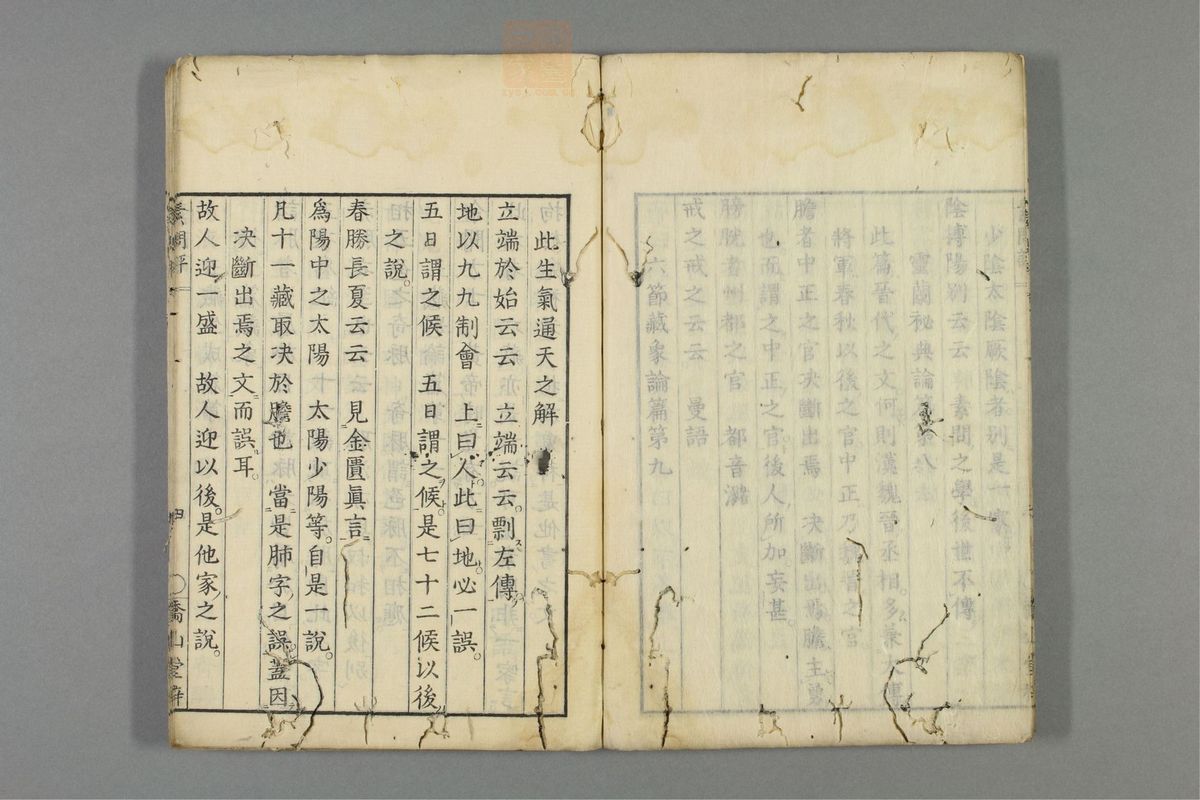 少陰太陰厥陰者別是一家
陰搏陽別云云 素問之學後世不傳
靈蘭秘典論篇第八
此篇晉代之文何則漢魏晉丞相多兼大
將軍春秋以後之官中正乃魏晉之官
膽者中正之官决斷出焉 决斷出焉膽主勇
也而謂之中正之官後人所加妄甚
膀胱者州都之官 都音瀦
戒之戒之云云 曼語
六節藏象論篇第九
此生氣通天之解
立端於始云云 立端云云。剽左傳。
地以九九制會 上曰人。此曰地。必一誤。
五日謂之候 五日謂之候。是七十二候以後
之說。
春勝長夏云云 見金匱眞言
爲陽中之太陽 太陽少陽等。自是一說。
凡十一藏取决於膽也 當是肺字之誤。蓋因
决斷出焉之文而誤耳。
故人迎盛 故人迎以後。是他家之說。
素問評
四